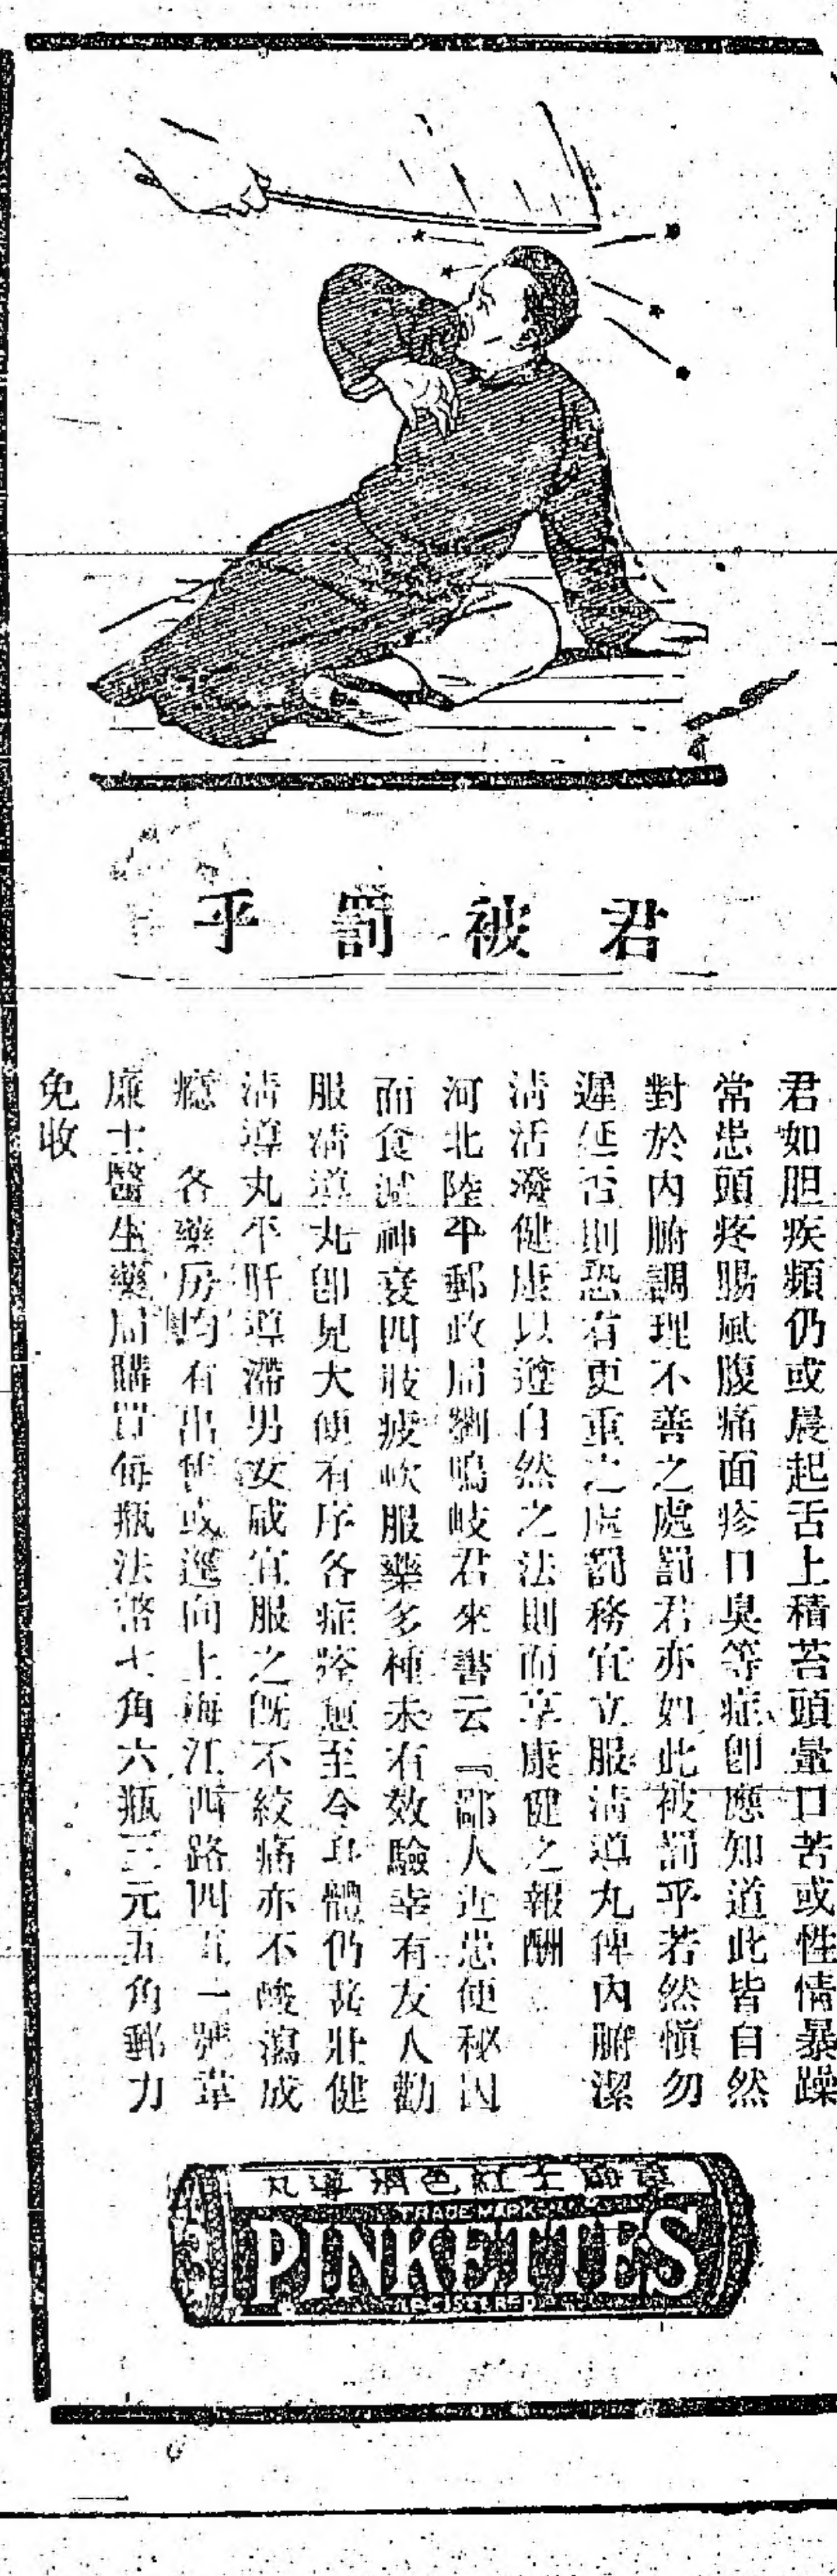 君被罰乎
君如胆疾頻仍或晨起舌上積苔頭暈口苦或性情暴躁
常患頭疼腸風腹痛面疹口臭等症卽應知道此皆自然
對於內腑調理不善之處罰君亦如此被罰乎若然愼勿
遲延否則恐有更重之處罰務宜立服淸導丸俾內腑潔
淸活潑健康以遵自然之法則而享康健之報酬
河北陸平郵政局劉鳴岐君來書云『鄙人近患便秘因
而食減神衰四肢疲軟服藥多種未有效驗幸有友人勸
服淸導丸卽見大便有序各症霍愈至今身體仍甚壯健
淸導丸平肝導滯男女咸宜服之旣不絞痛亦不峻瀉成
癮 各藥房均有出售或逕向上海江西路四五一號韋
廉士醫生藥局購買每瓶法幣七角六瓶三元五角郵力
免收
韋廉士紅色淸導丸
TRADE MARK
PINKETTES
REGISTERED